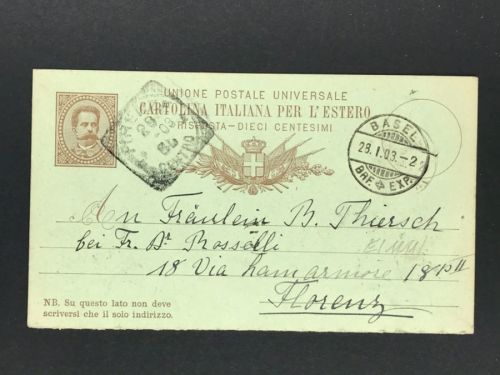 UNIONE POSTALE UNIVERSALE
CARTOLINA ITALIANA PER L'ESTERO
RISPOSTA-DIECI CENTESIMI
BASEL
28.I.03.-2
BRF. EXP.
An Fräulein B. Thiersch
bei Fr. Dr Rosselli
18 Via Lamarmore 18 III
Florenz
NB. Su questo lato non deve
scriversi che il solo indirizzo.